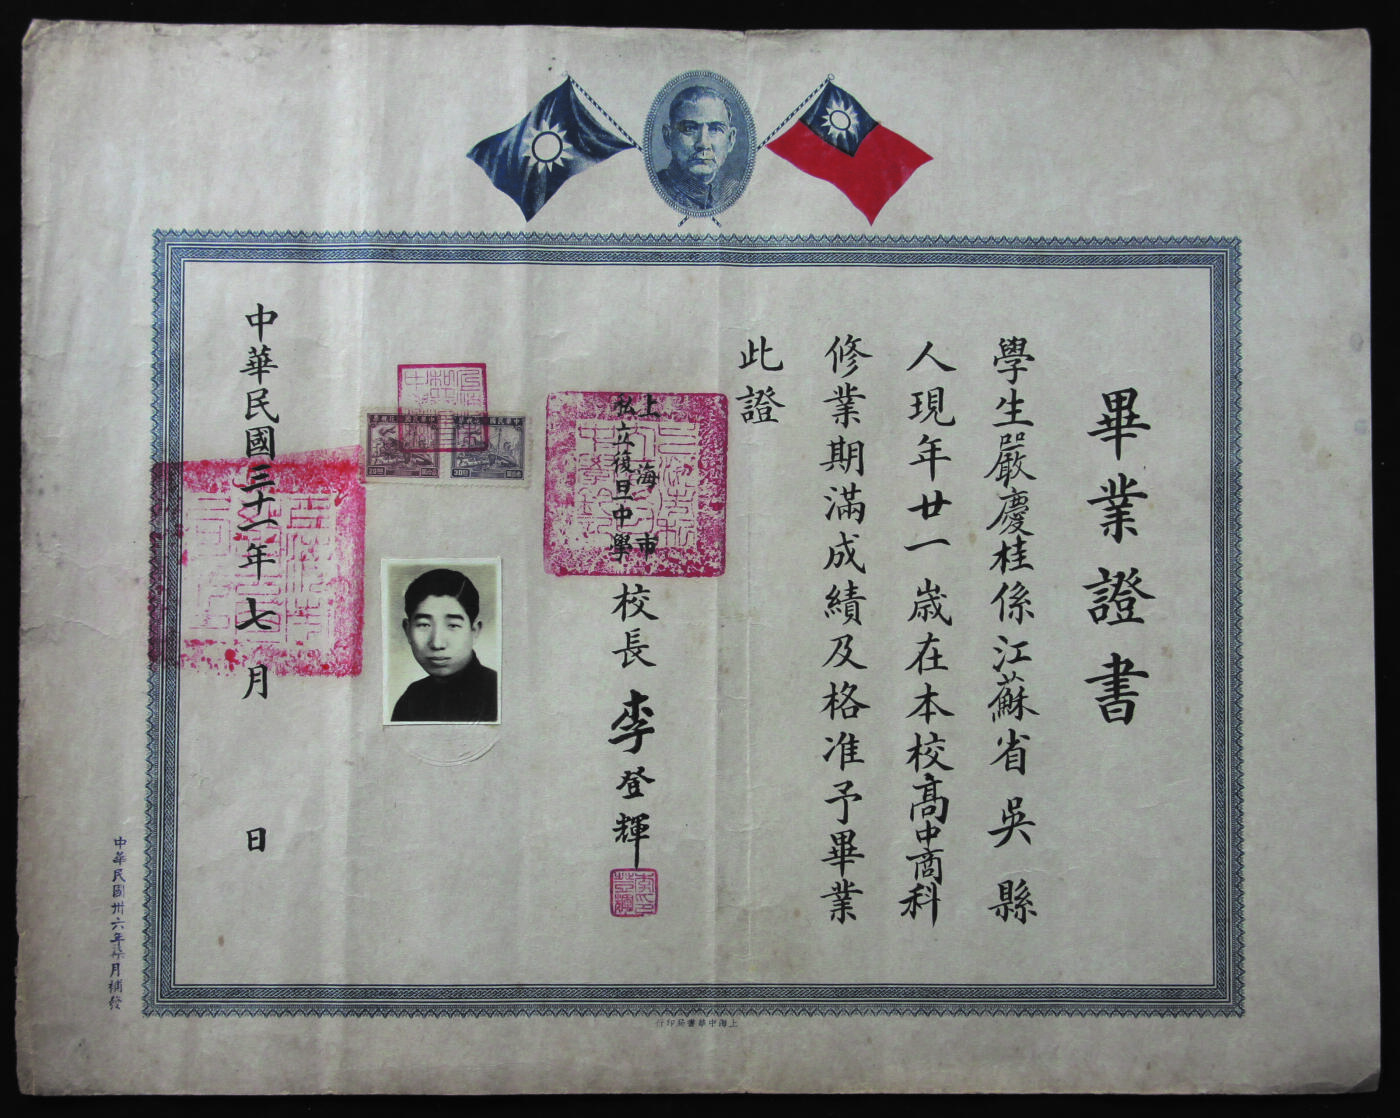 畢業證書
學生嚴慶桂係江蘇省吳縣
人現年廿一歲在本校高中商科
修業期滿成績及格准予畢業
此證
上海市
私立復旦中學
校長李登輝
中華民國三十一年七月 日
中華民國卅六年柒月補發
上海中華書局印行